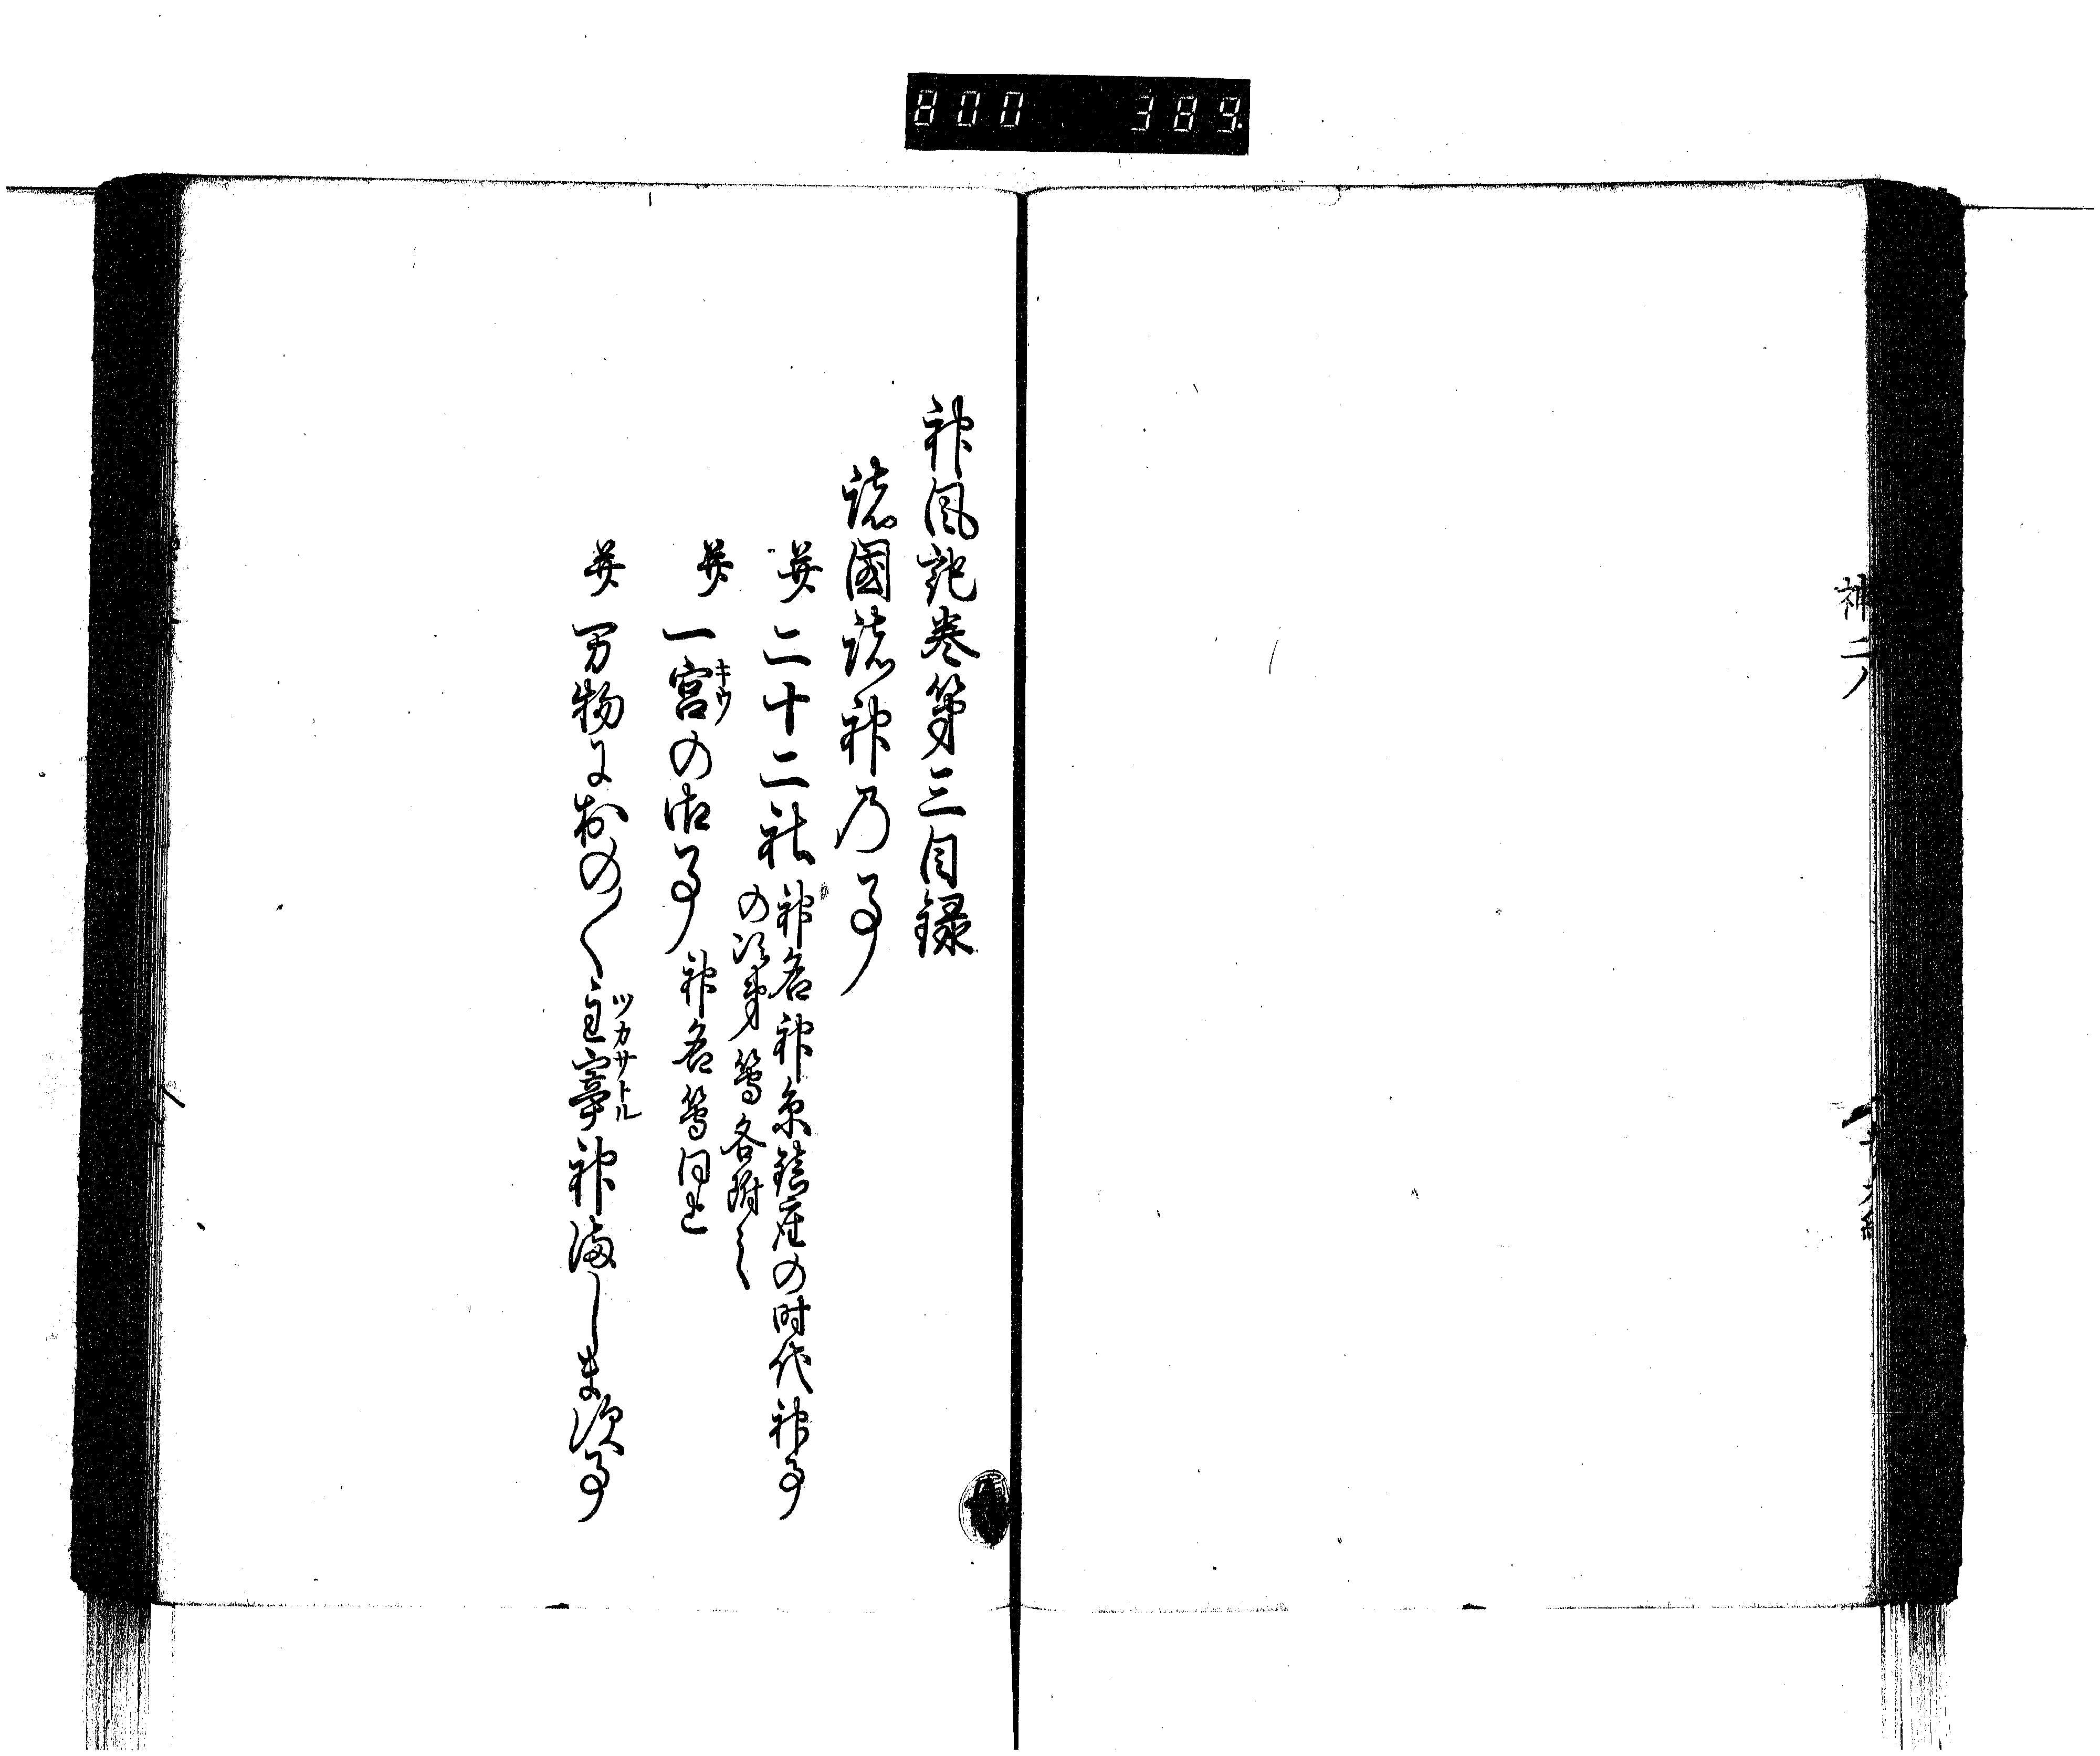 800 389
神二ノ
神風記巻第三目録
諸国諸神乃事
并 二十二社 神名神系鎮座の時代神事
の次第等各附之
并 一宮の御事 神名等同上
キウ
并 万物におの〱主宰神満しま須事
ツカサトル